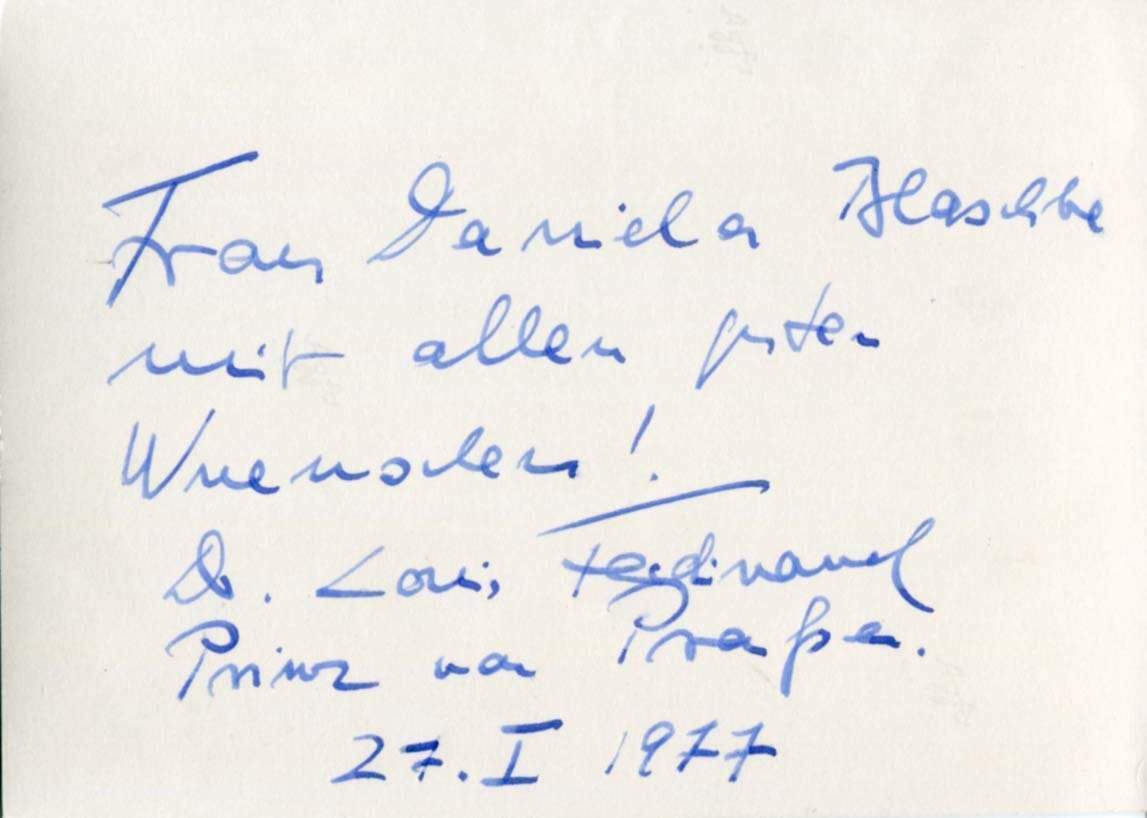 Frau Daniela Blaschke
mit allen guten
Wuenschen!
Dr. Louis Ferdinand
Prinz von Preußen.
27. I 1977